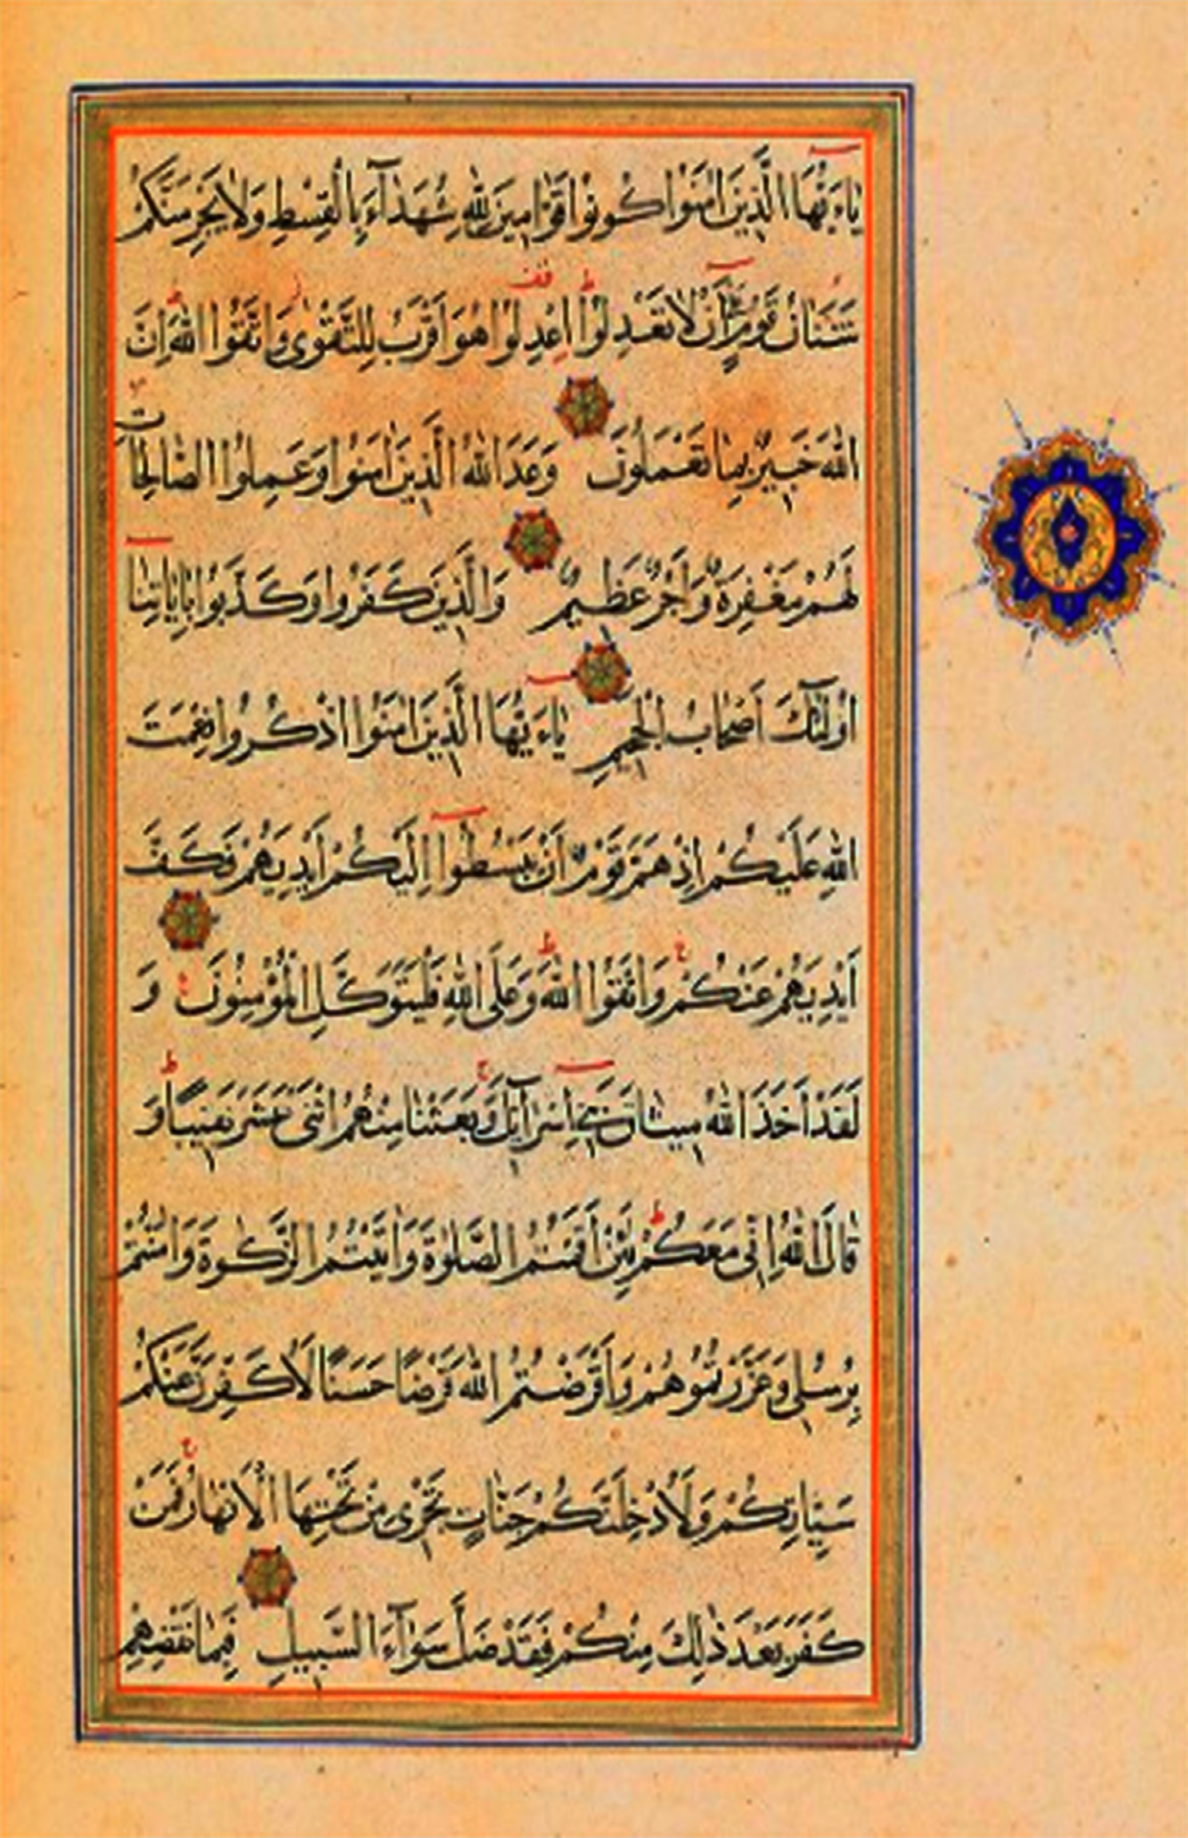 يَاءَيُّهَا الَّذِينَ اٰمَنُوا كُونُوا قَوَّامِينَ لِلّٰهِ شُهَدَآءَ بِالْقِسْطِ وَلَا يَجْرِمَنَّكُمْ
شَنَئَانُ قَوْمٍ عَلٰٓى اَنْ لَا تَعْدِلُوا اعْدِلُوا هُوَ اَقْرَبُ لِلتَّقْوٰى وَاتَّقُوا اللّٰهَ اِنَّ
اللّٰهَ خَبِيرٌ بِمَا تَعْمَلُونَ وَعَدَ اللّٰهُ الَّذِينَ اٰمَنُوا وَعَمِلُوا الصَّالِحَاتِ
لَهُمْ مَغْفِرَةٌ وَاَجْرٌ عَظِيمٌ وَالَّذِينَ كَفَرُوا وَكَذَّبُوا بِاٰيَاتِنَا
اُولٰٓئِكَ اَصْحَابُ الْجَحِيمِ يَاءَيُّهَا الَّذِينَ اٰمَنُوا اذْكُرُوا نِعْمَتَ
اللّٰهِ عَلَيْكُمْ اِذْ هَمَّ قَوْمٌ اَنْ يَبْسُطُوا اِلَيْكُمْ اَيْدِيَهُمْ فَكَفَّ
اَيْدِيَهُمْ عَنْكُمْ وَاتَّقُوا اللّٰهَ وَعَلَى اللّٰهِ فَلْيَتَوَكَّلِ الْمُؤْمِنُونَ وَ
لَقَدْ اَخَذَ اللّٰهُ مِيثَاقَ بَنِي اِسْرَآئِلَ وَبَعَثْنَا مِنْهُمُ اثْنَيْ عَشَرَ نَقِيبًا وَ
قَالَ اللّٰهُ اِنِّي مَعَكُمْ لَئِنْ اَقَمْتُمُ الصَّلٰوةَ وَاٰتَيْتُمُ الزَّكٰوةَ وَاٰمَنْتُمْ
بِرُسُلِي وَعَزَّرْتُمُوهُمْ وَاَقْرَضْتُمُ اللّٰهَ قَرْضًا حَسَنًا لَاُكَفِّرَنَّ عَنْكُمْ
سَيِّاٰتِكُمْ وَلَاُدْخِلَنَّكُمْ جَنَّاتٍ تَجْرِي مِنْ تَحْتِهَا الْاَنْهَارُ فَمَنْ
كَفَرَ بَعْدَ ذٰلِكَ مِنْكُمْ فَقَدْ ضَلَّ سَوَآءَ السَّبِيلِ فَبِمَا نَقْضِهِمْ